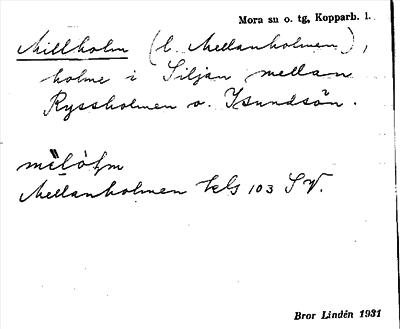 Mora sn o. tg, Kopparb. l.
Millholm (l. Mellanholmen),
holme i Siljan mellan
Ryssholmen o. Isundsön.
Mellanholmen kls 103 SV.
Bror Lindén 1931